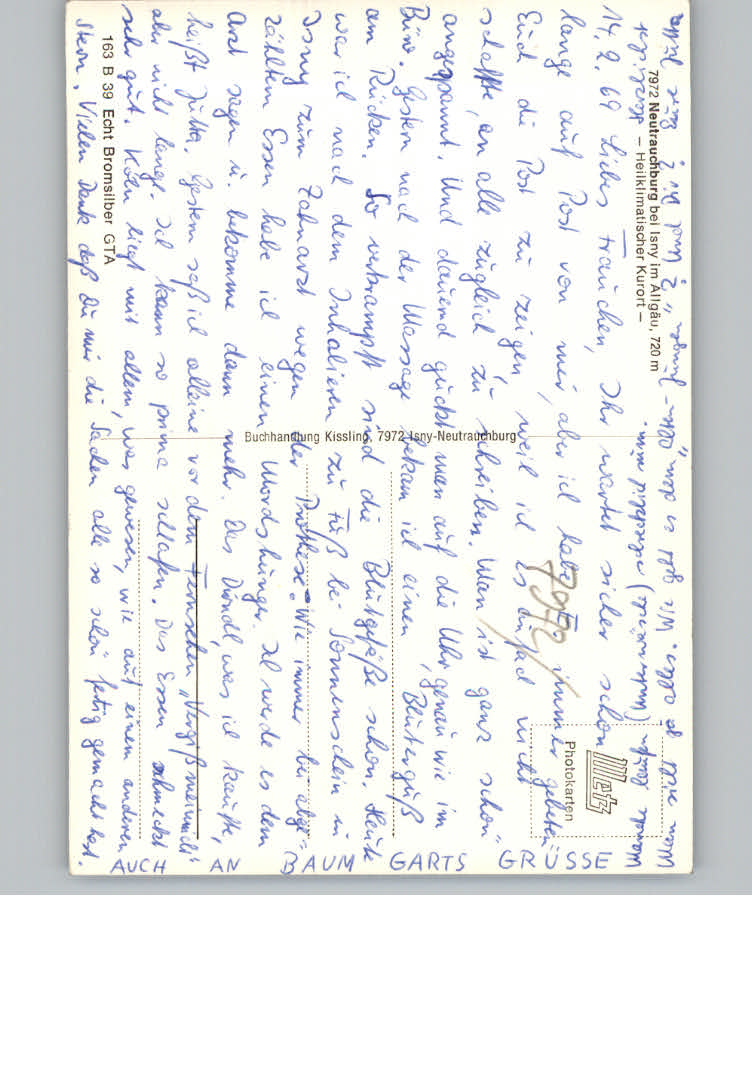 7972 Neutrauchburg bei Isny im Allgäu, 720 m
– Heilklimatischer Kurort –
14. 9. 69 Liebes Frauchen, Ihr wartet sicher schon
lange auf Post von mir, aber ich habe immer gebeten
Euch die Post zu zeigen, weil ich es einfach nicht
schaffte, an alle zugleich zu schreiben. Man ist ganz schön
angespannt. Und dauernd guckt man auf die Uhr, genau wie im
Büro. Gestern nach der Massage bekam ich einen Bluterguß
am Rücken. So verkrampft sind die Blutgefäße schon. Heute
war ich nach dem Inhalieren zu Fuß bei Sonnenschein in
Isny zum Zahnarzt wegen der Prothese. Wie immer bei abge-
zähltem Essen habe ich einen Mordshunger. Ich werde es dem
Arzt sagen u. bekomme dann mehr. Das Dirndl, was ich kaufte,
heißt Jutta. Gestern saß ich alleine vor dem Fernsehen „Vergißmeinnicht"
aber nicht lange. Ich kann so prima schlafen. Das Essen schmeckt
sehr gut. Köln liegt mit allem, was gewesen, wie auf einem anderen
Stern. Vielen Dank daß Du mir die Sachen alle so schön fertig gemacht hast.
Buchhandlung Kissling, 7972 Isny-Neutrauchburg
7972
Metz
Photokarten
163 B 39 Echt Bromsilber GTA
AUCH AN BAUMGARTS GRÜSSE